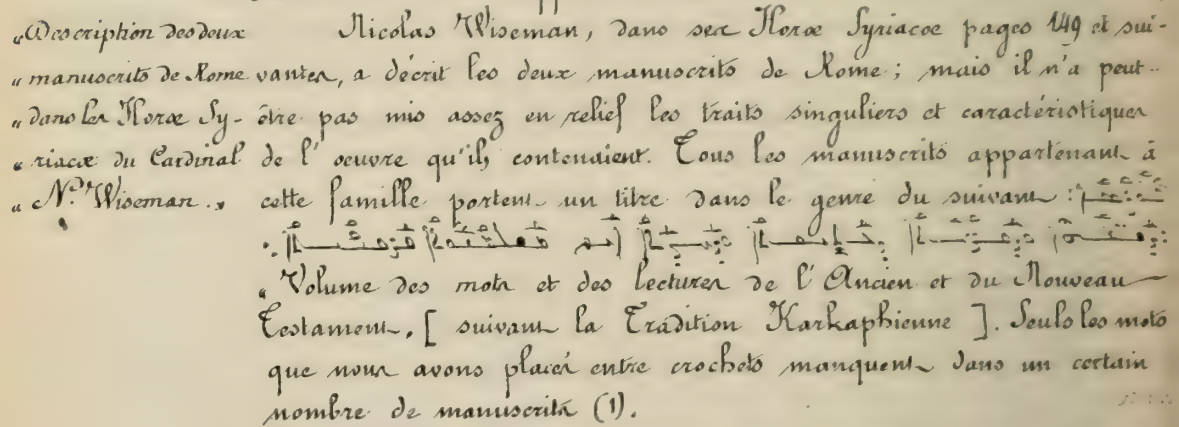 „Description des deux
„manuscrits de Rome
„dans les Horœ Sy-
„riacœ du Cardinal
„N. Wiseman.„
Nicolas Wiseman, dans ses Horœ Syriacœ pages 149 et sui-
vantes, a décrit les deux manuscrits de Rome ; mais il n'a peut-
être pas mis assez en relief les traits singuliers et caractéristiques
de l'oeuvre qu'ils contenaient. Tous les manuscrits appartenant à
cette famille portent un titre dans le genre du suivant :
„Volume des mots et des lectures de l'Ancien et du Nouveau
Testament, [ suivant la Tradition Karkaphienne ]. Seuls les mots
que nous avons placés entre crochets manquent dans un certain
nombre de manuscrits (1).